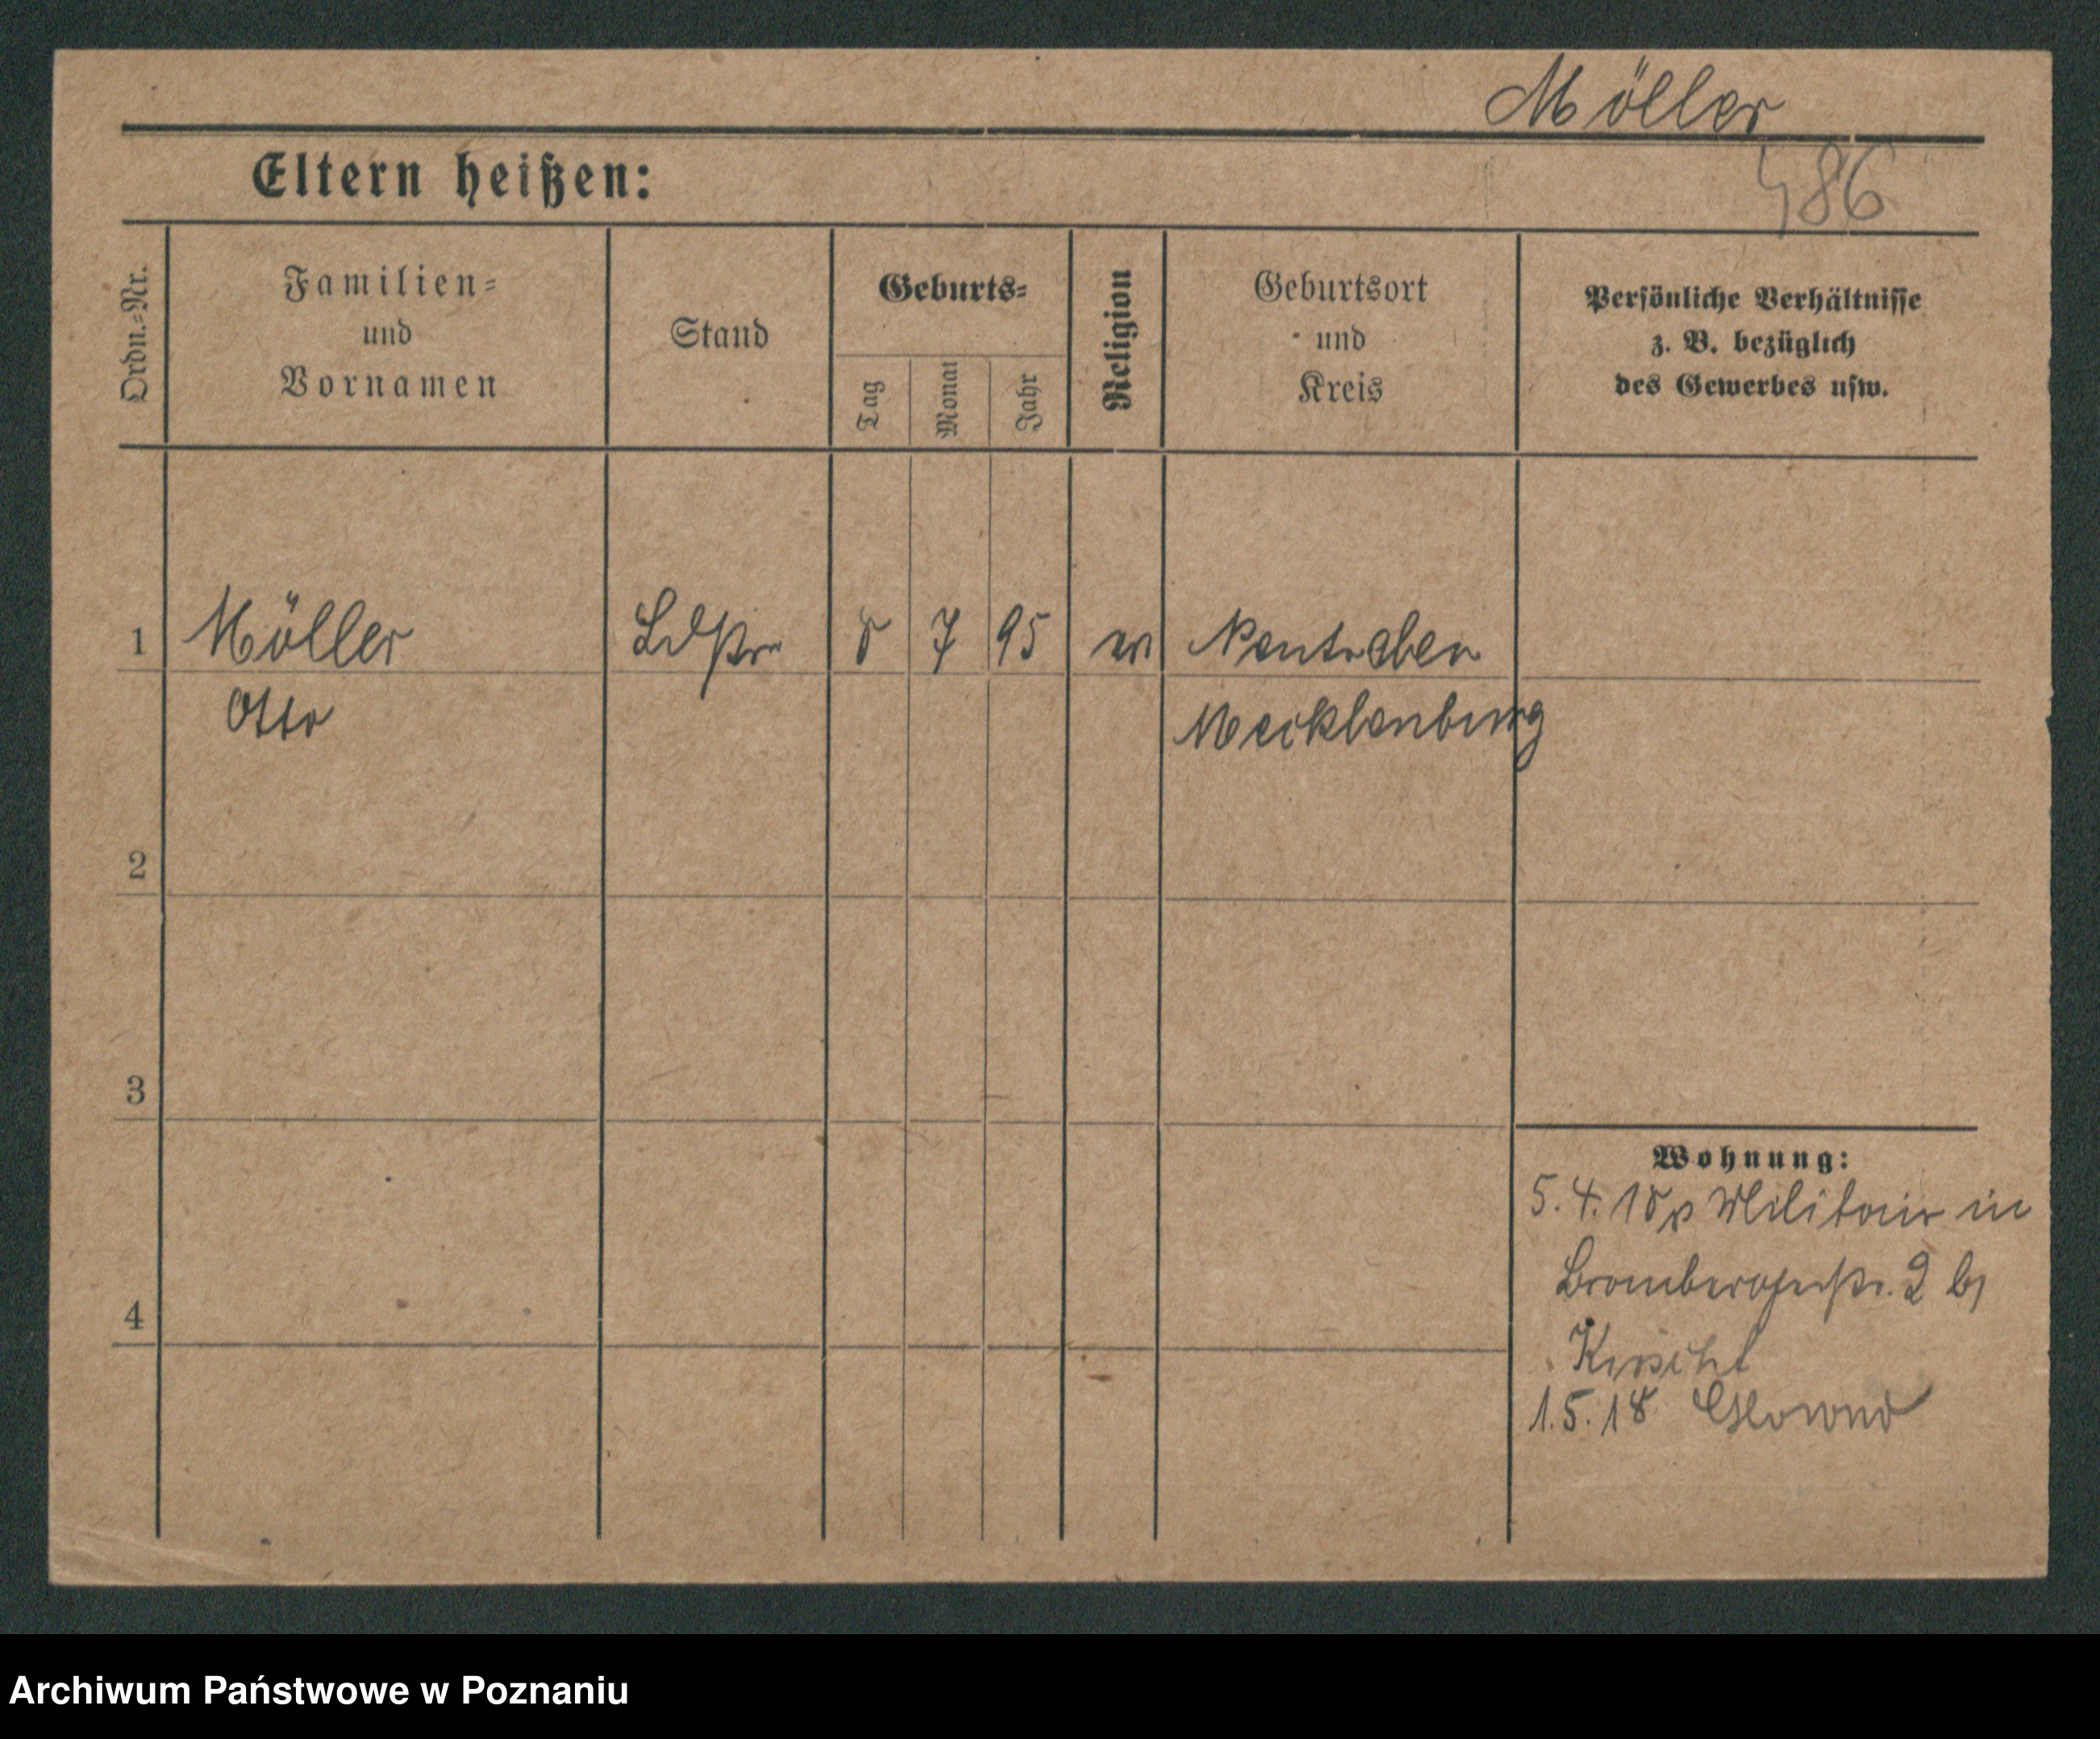 Möller
Eltern heißen:
486
Ordn.=Nr.
Familien=
und
Vornamen
Stand
Geburts=
Tag
Monat
Jahr
Religion
Geburtsort
und
Kreis
Persönliche Verhältnisse
z. B. bezüglich
des Gewerbes usw.
1
Möller
8
7
95
ev
Otto
Mecklenburg
2
3
4
Wohnung:
5. 4. 18 Militair in
Brombergerstr. 2 b/
1. 5. 18 Glowno
Archiwum Państwowe w Poznaniu